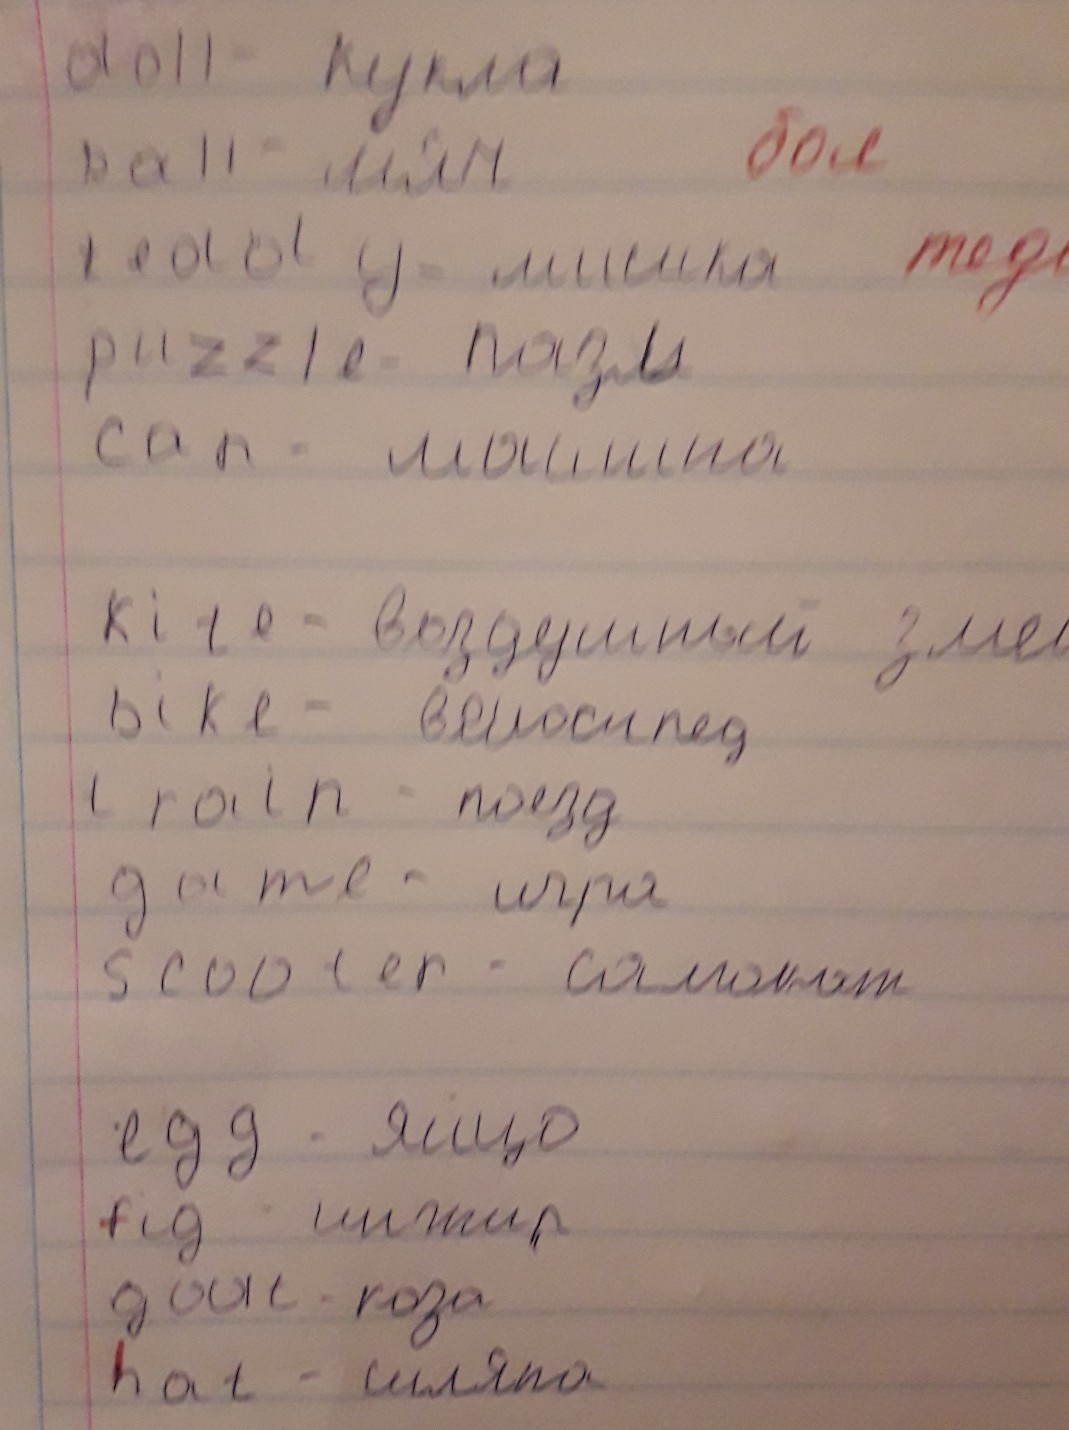 doll - кукла
ball - мяч бол
teddy - мишка
puzzle - пазлы
car - машина
kite - воздушный
bike - велосипед
train - поезд
game - игра
scooter - самокат
egg - яйцо
fig - инжир
goat - коза
hat - шляпа